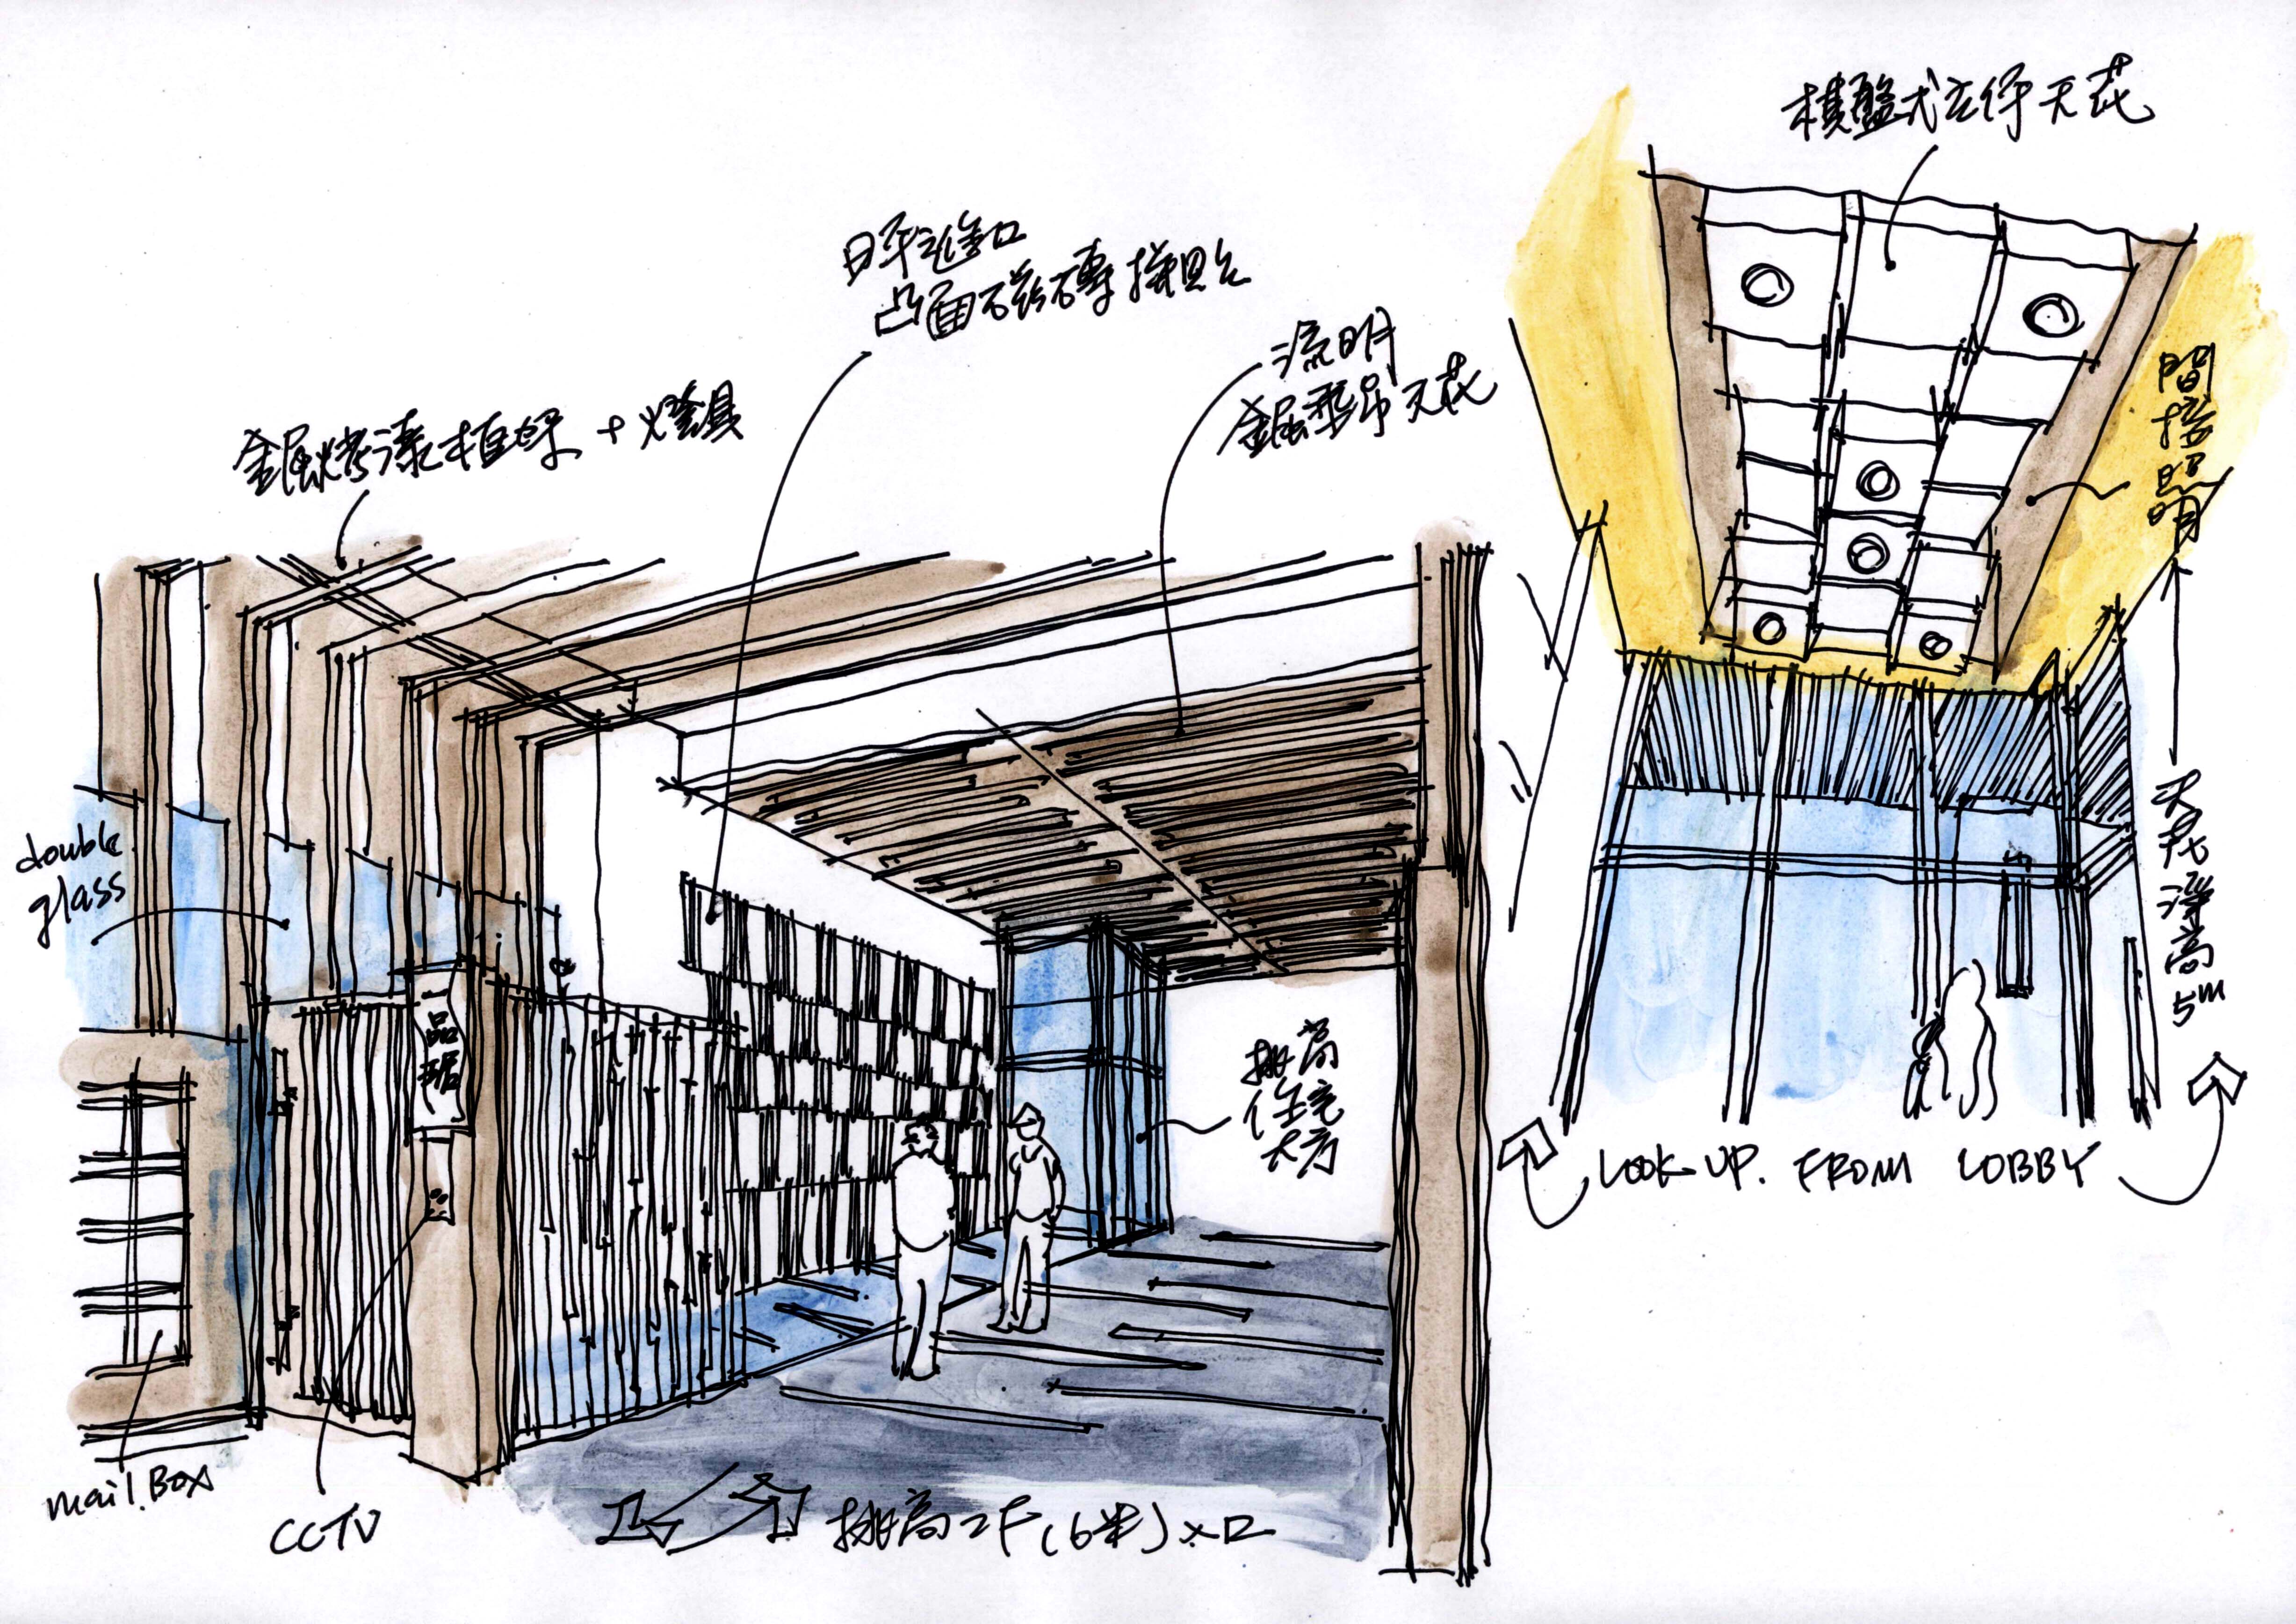 金屬烤漆植架 + 燈具
日本進口
凸面磁磚拼貼
流明
金屬垂吊天花
棋盤式立体天花
間接照明
天花淨高5m
double
glass
品琚
挑高
住宅
大方
mail.Box
CCTV
挑高2F(6米)入口
LOOK UP. FROM LOBBY